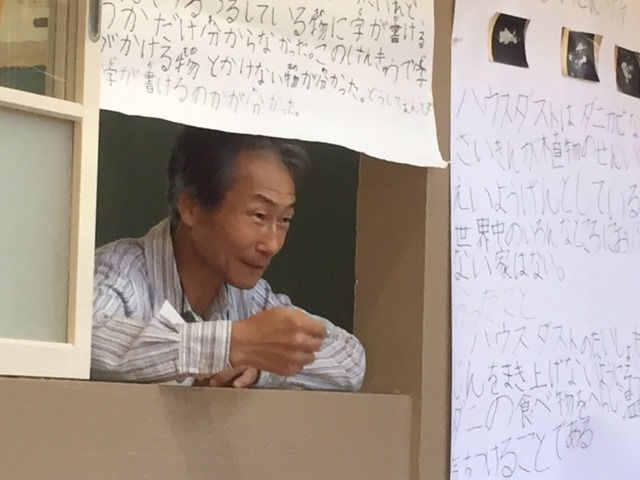 うつるつるしている物に字が書ける
つかだけ分からなかった。このけんきゅうで字
がかける物とかけない物が分かった。どうしてえんぴ
字が書けるのかが分かった。
ハウスダストはダニカビ
さいきんが植物のせんい
えいようげんとしている
世界中のいろんなところにお
ない家はない。
ハウスダストのたいし
んをまき上げないように
ダニの食べ物をへらし
つけることである